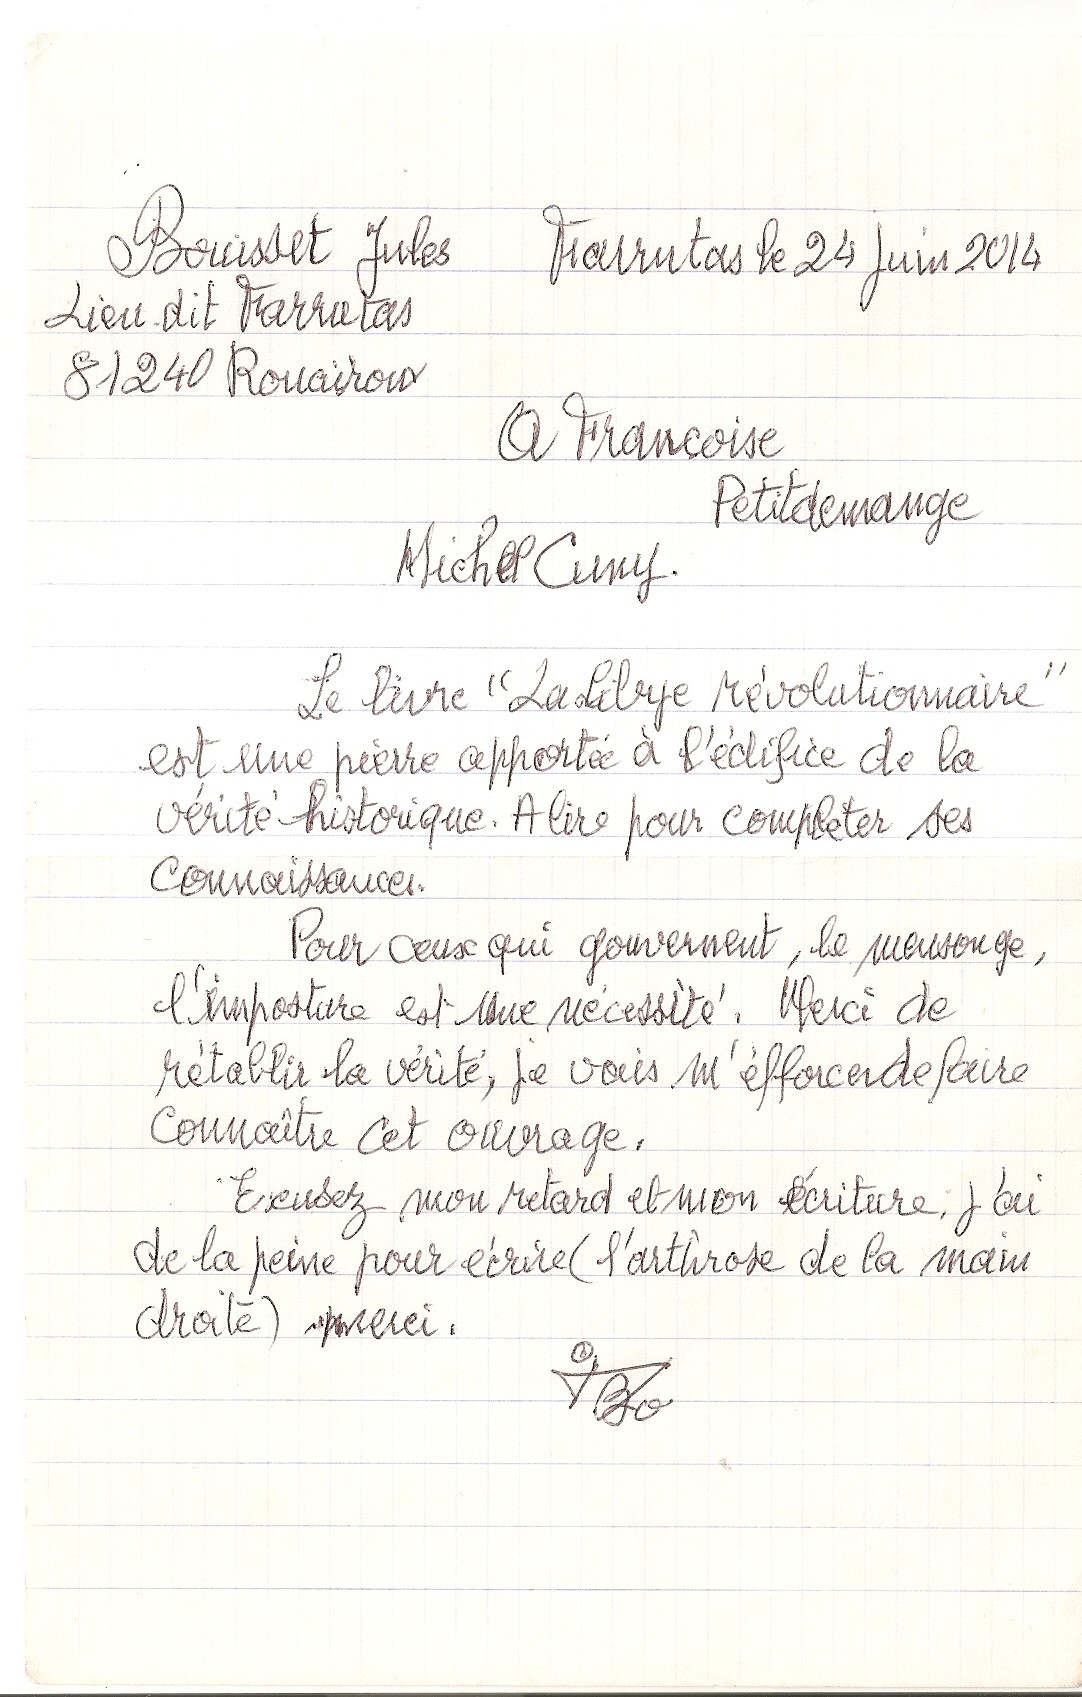 Bouisset Jules Farrutas le 24 Juin 2014
Lieu-dit Farrutas
81240 Rouairoux
A Francoise
Petitdemange
Michel Cuny.
Le livre "La Libye révolutionnaire"
est une pierre apportée à l'édifice de la
vérité historique. A lire pour completer ses
connaissances.
Pour ceux qui gouvernent, le mensonge,
l'imposture est une nécessité. Merci de
rétablir la vérité, je vais m'éfforcer de faire
connaître cet ouvrage.
Excusez mon retard et mon écriture, j'ai
de la peine pour écrire (l'arthrose de la main
droite) merci.